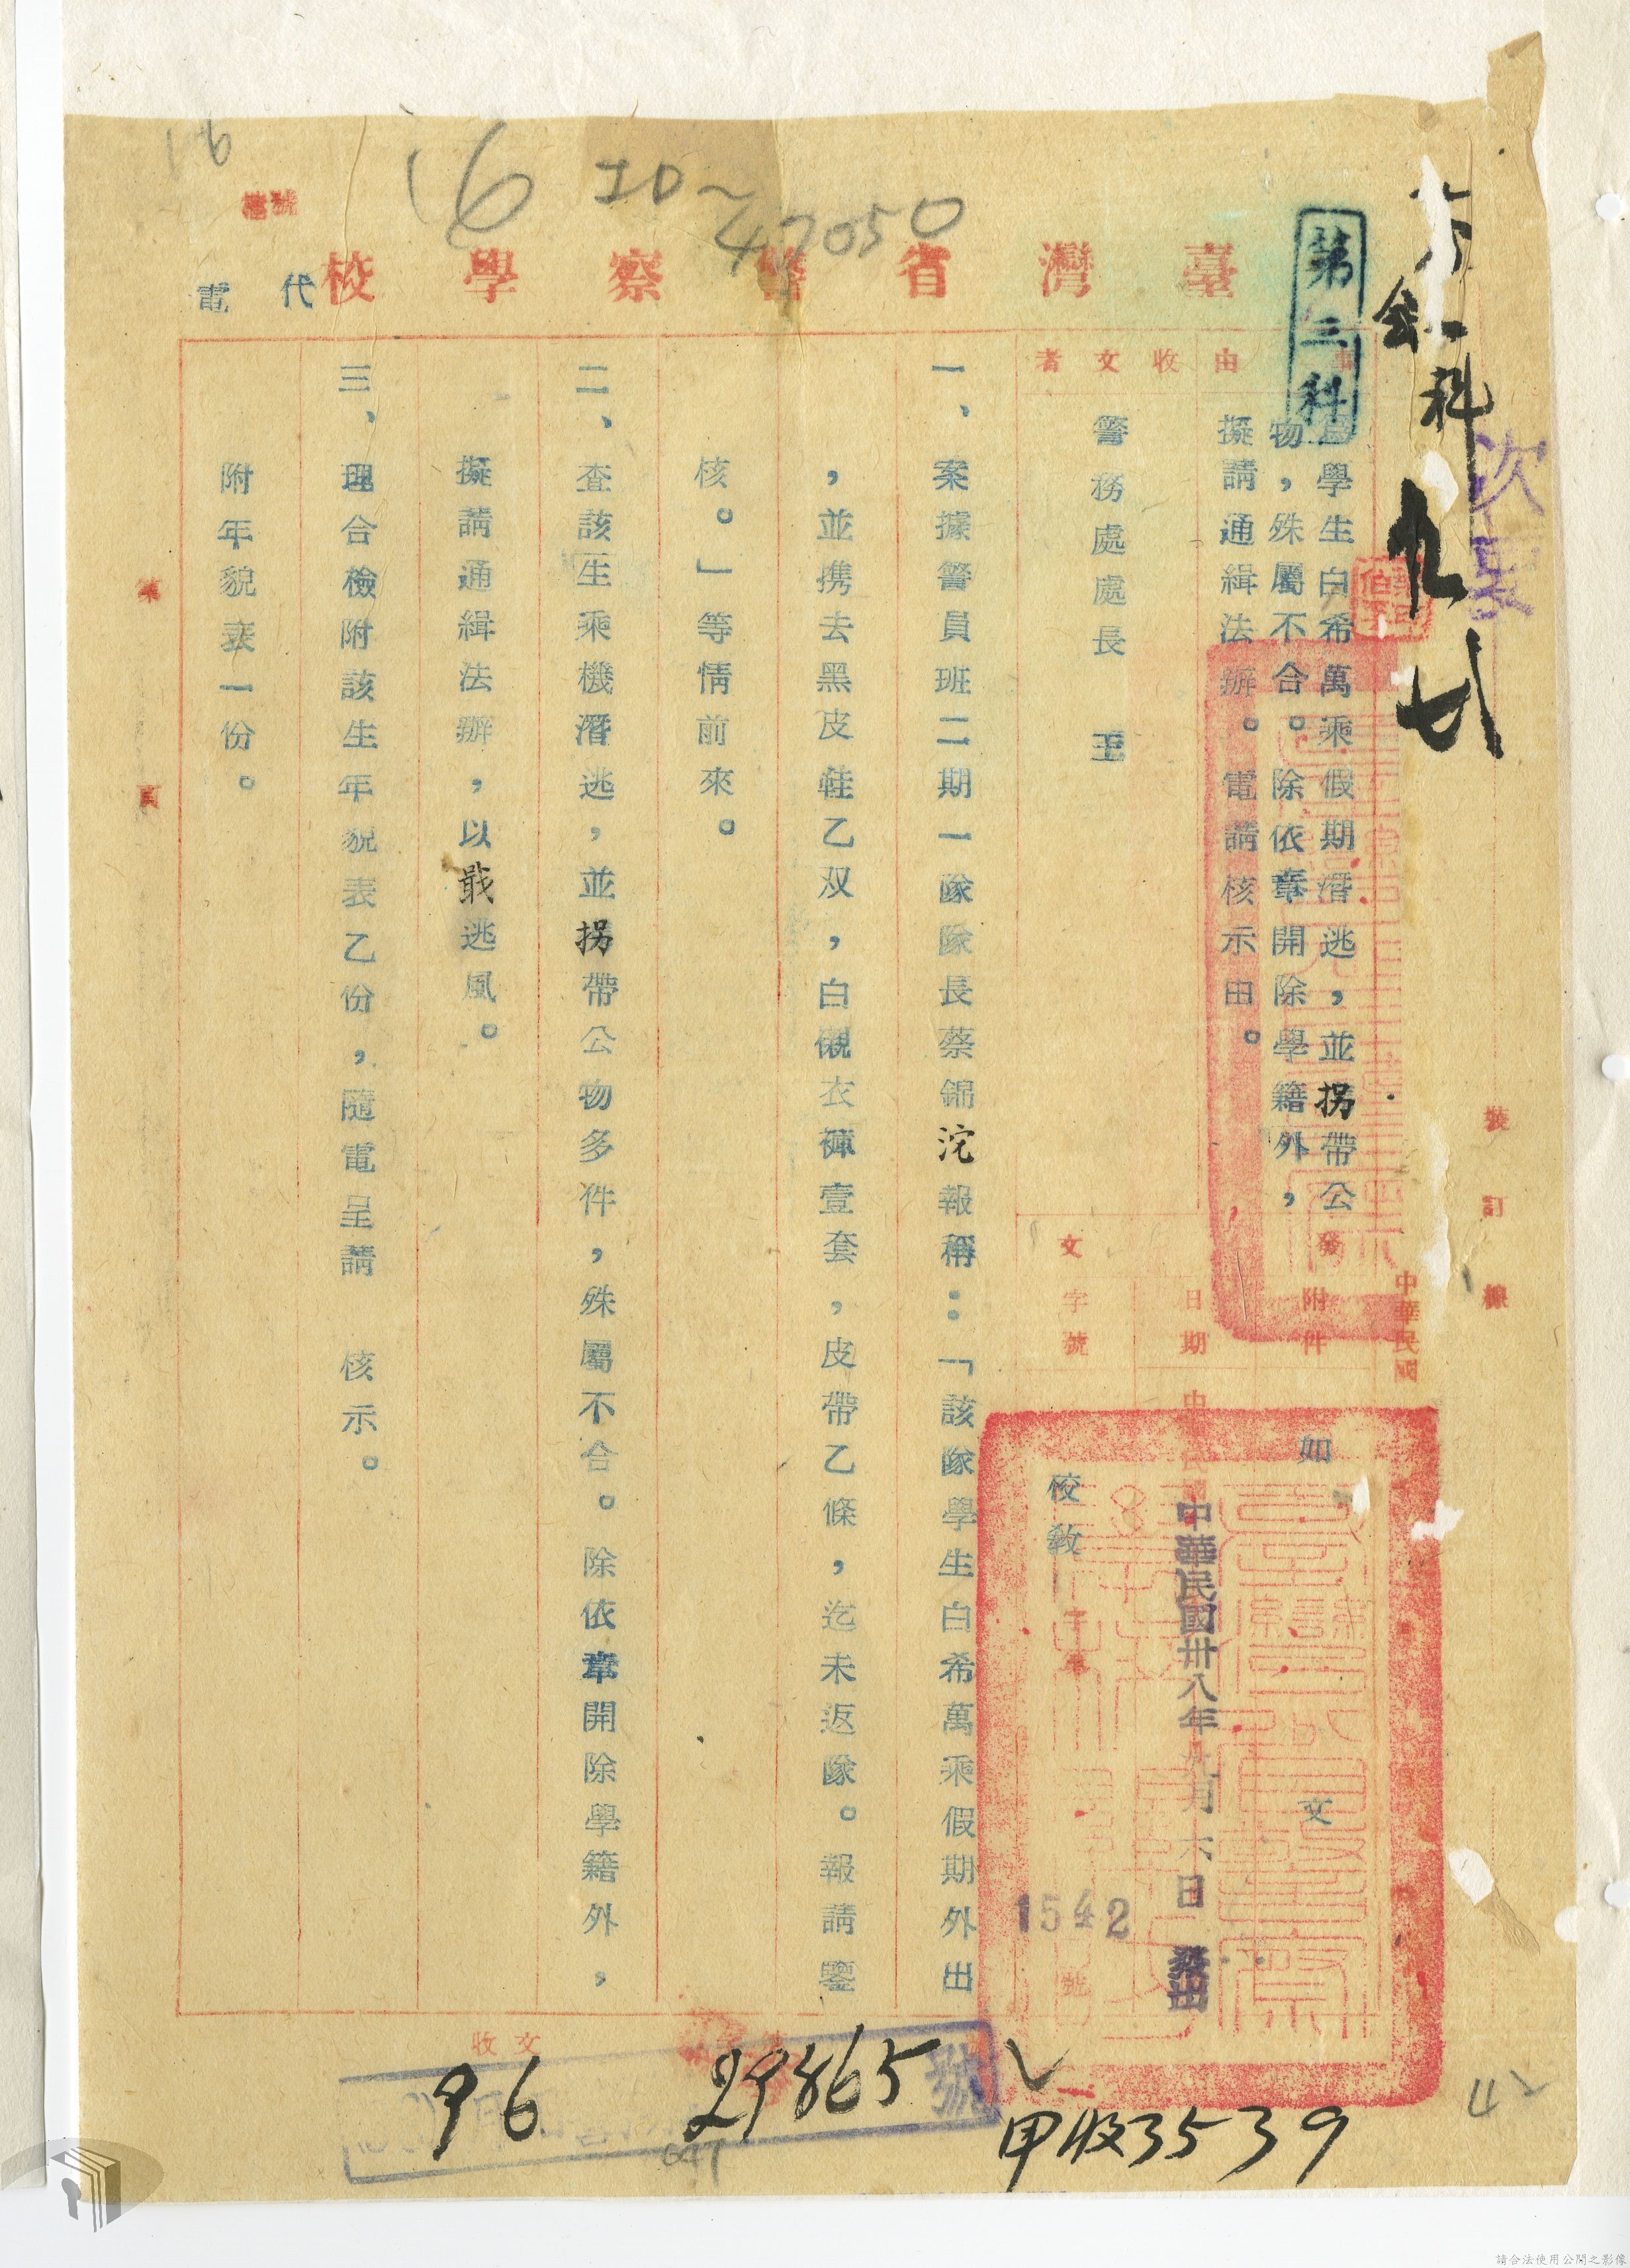 16
16 ID~
47050
檔號
臺灣省警察學校
代電
第三科
會一科
次要
事由
學生白希萬乘假期潛逃，並拐帶公
物，殊屬不合。除依章開除學籍外，
擬請通緝法辦。電請核示由。
收文者
警務處處長 王
發文
附件
如文
日期
中華民國卅八年九月六日發出
字號
校敎
字第
1542
號
一、案據警員班二期一隊隊長蔡錦沱報稱：「該隊學生白希萬乘假期外出
，並携去黑皮鞋乙双，白襯衣褲壹套，皮帶乙條，迄未返隊。報請鑒
核。」等情前來。
二、查該生乘機潛逃，並拐帶公物多件，殊屬不合。除依章開除學籍外，
擬請通緝法辦，以戢逃風。
三、理合檢附該生年貌表乙份，隨電呈請 核示。
附年貌表一份。
第 頁
裝訂線
中華民國
收文
96
29865
號
甲收3539
42
請合法使用公開之影像